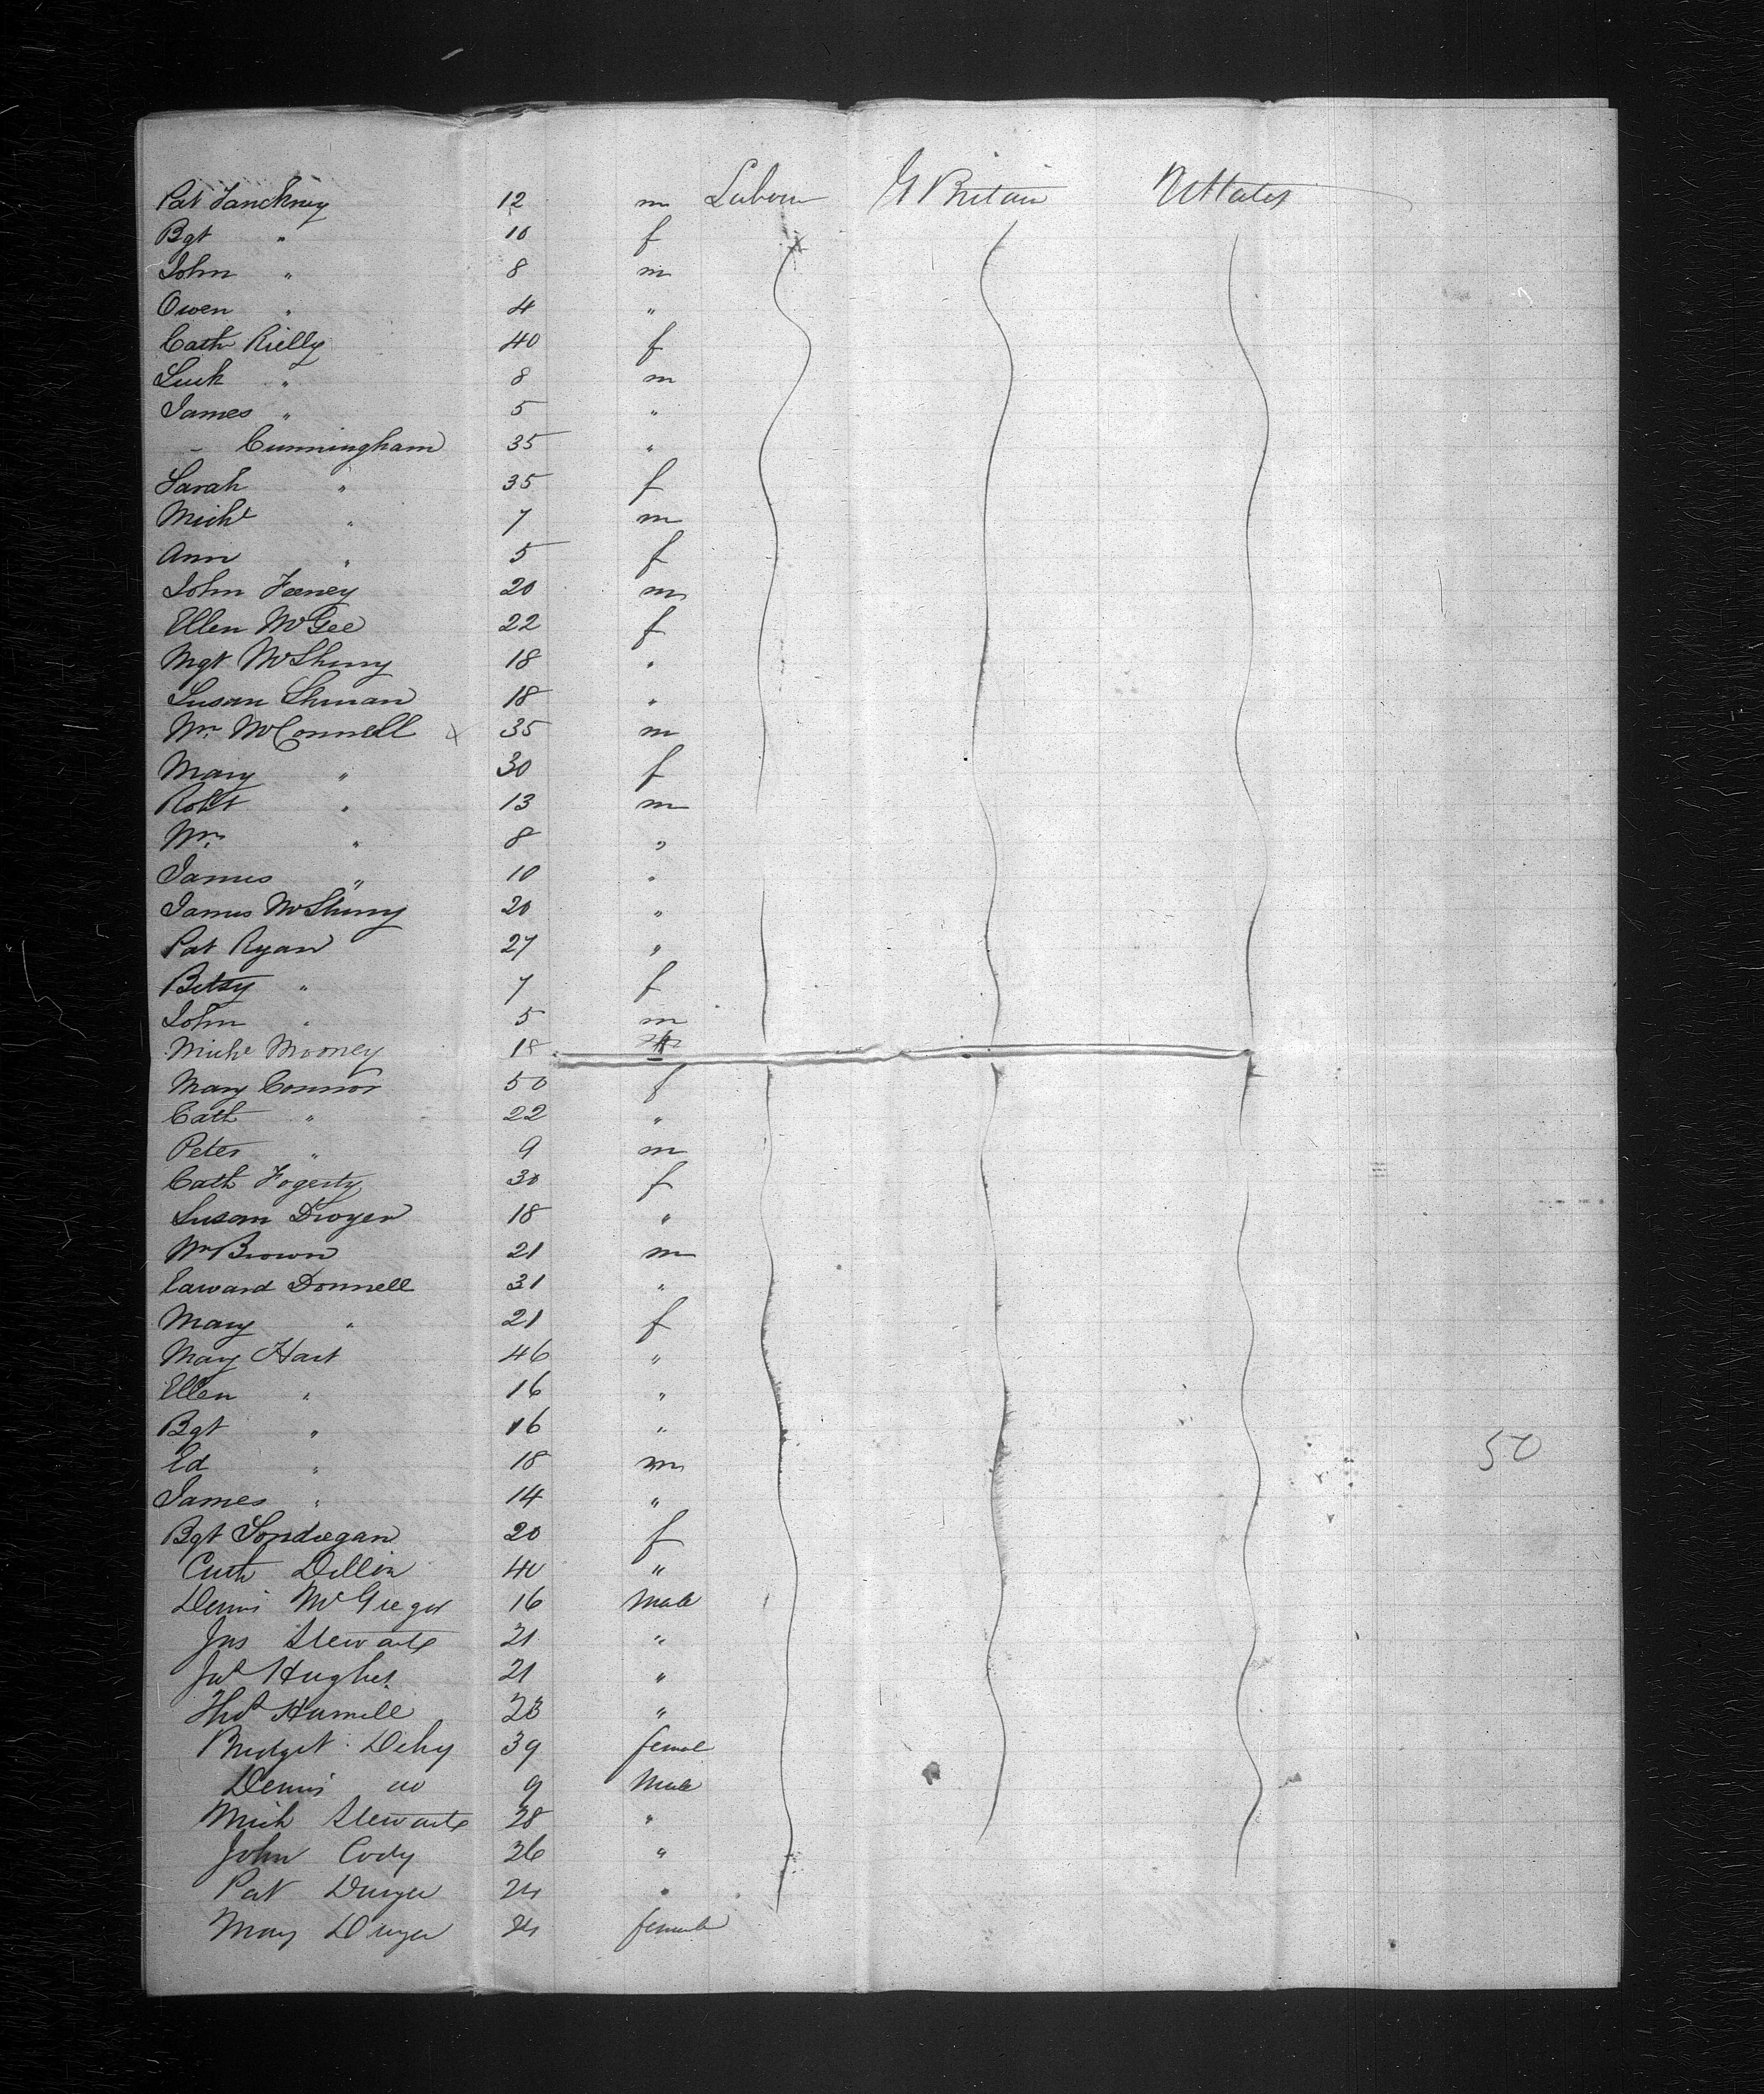 Pat Fanckney 12 m Labour G Britain U States
Bgt " 10 f
John " 8 m
Owen " 4 "
Cath Rielly 40 f
Luck " 8 m
James " 5 "
- Cunningham 35 "
Sarah " 35 f
Michl " 7 m
Ann " 5 f
John Feeney 20 m
Ellen McGee 22 f
Mgt McSherry 18 "
Susan Shinan 18 "
Wm McConnell x 35 m
Mary " 30 f
Robt " 13 m
Wm " 8 "
James " 10 "
James McSherry 20 "
Pat Ryan 27 "
Betsy " 7 f
John " 5 m
Michl Mooney 18
Mary Connor 50 f
Cath " 22 "
Peter " 9 m
Cath Fogerty 30 f
Susan Dwyer 18 "
Wm Brown 21 m
Edward Donnell 31 "
Mary " 21 f
Mary Hart 46 "
Ellen " 16 "
Bgt " 16 "
50
Ed " 18 m
James " 14 "
Bgt Londregan 20 f
Cath Dillon 40 "
Dennis McGregor 16 Male
Jas Stewarts 21 "
Jno Hughes 21 "
Thos Hamill 23 "
Bridget Dehy 39 femal
Dennis do 9 Male
Mich Stewarts 28 "
John Cody 26 "
Pat Dwyer 24 "
Mary Dwyer 24 female